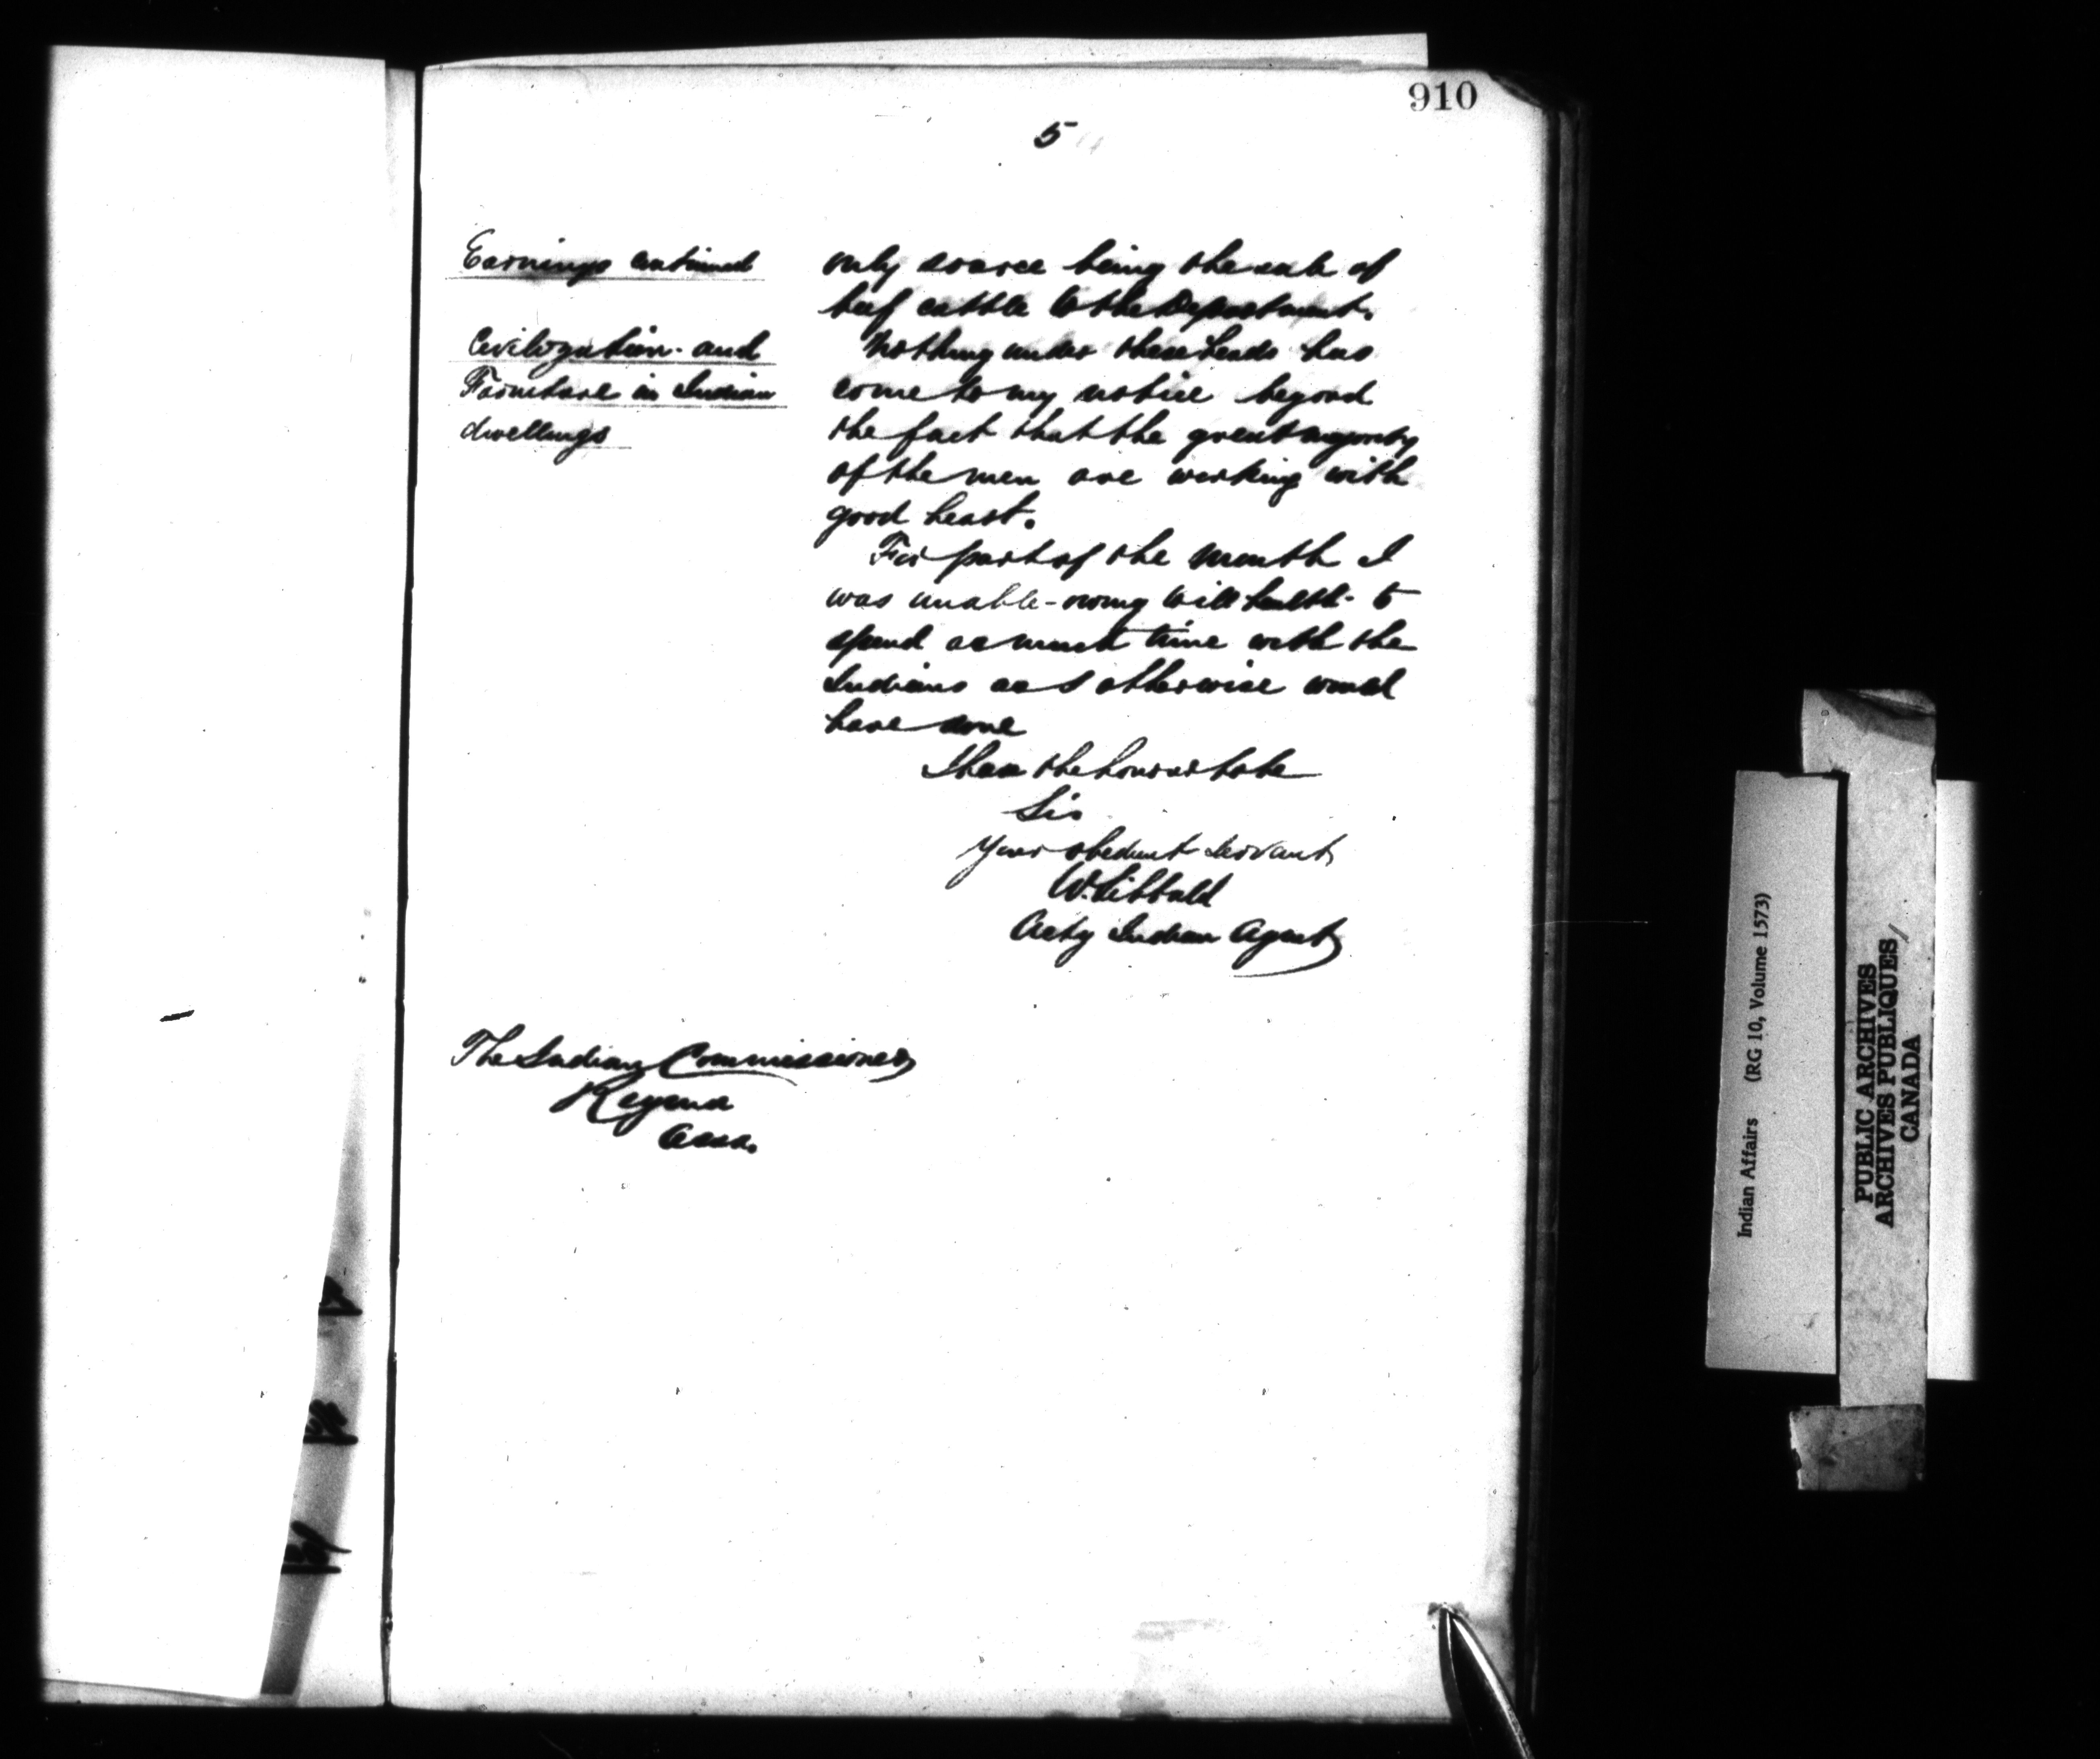 910
5
Earnings continued
only source being the sale of
beef cattle to the Department.
Civilization and
Furniture in Indian
dwellings
Nothing under these heads has
come to my notice beyond
the fact that the great majority
of the men are working with
good heart.
For part of the month I
was unable - owing to ill health - to
spend as much time with the
Indians as I otherwise would
have done
I have the honor to be
Sir
Your obedient servant
W. Sibbald
Actg Indian Agent
The Indian Commissioner
Regina
Assa.
Indian Affairs (RG 10, Volume 1573)
PUBLIC ARCHIVES
ARCHIVES PUBLIQUES
CANADA